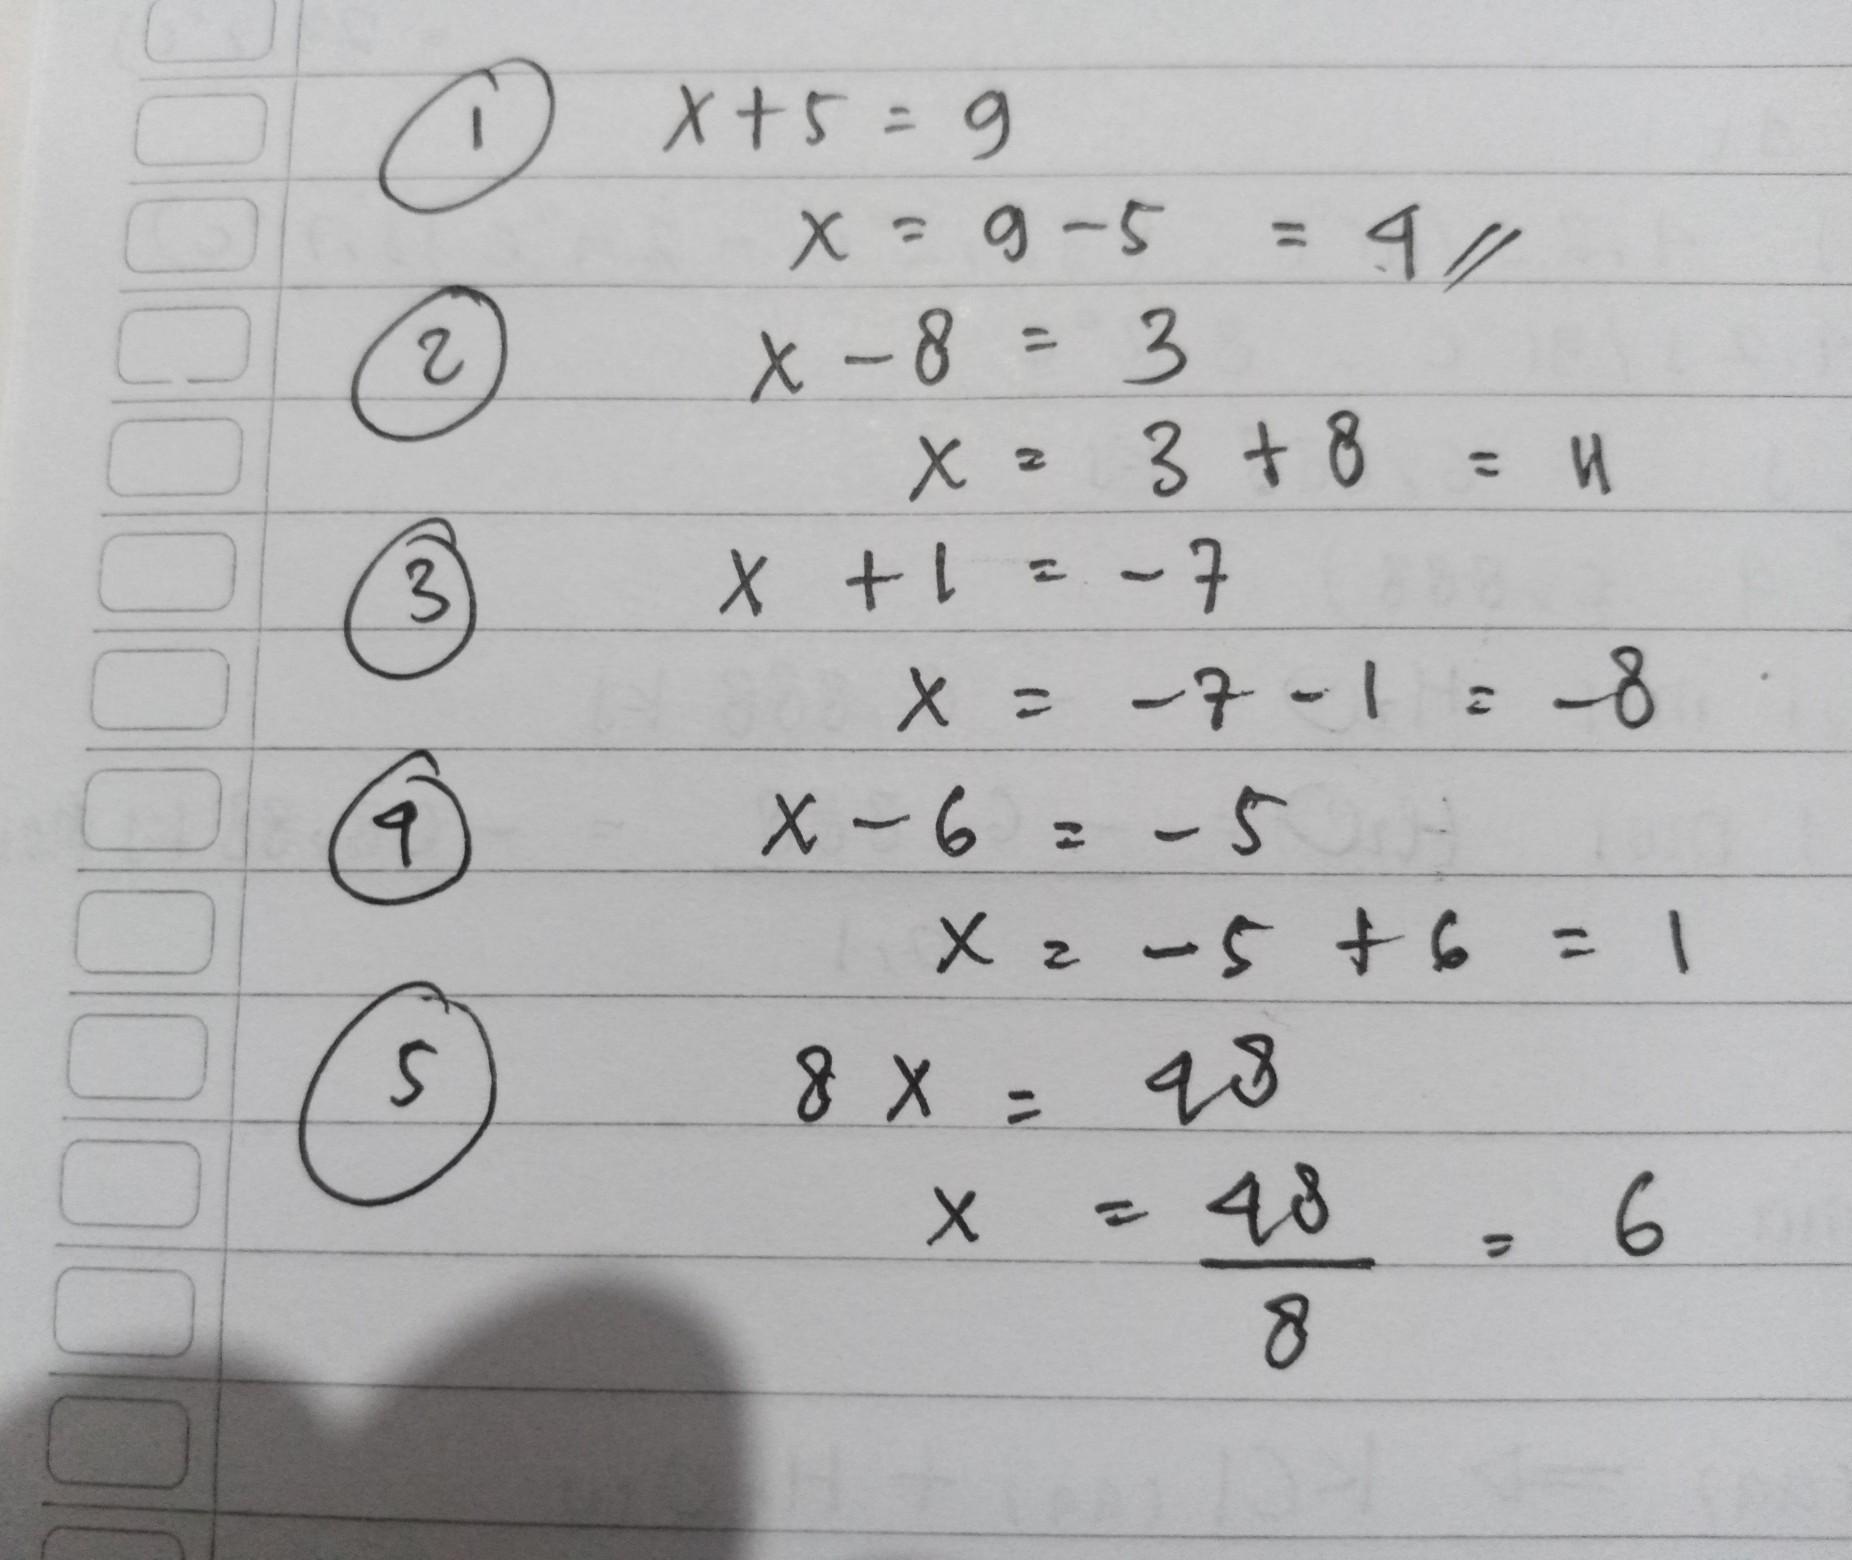 1 x + 5 = 9
x = 9 - 5 = 4 //
2 x - 8 = 3
x = 3 + 8 = 11
3 x + 1 = -7
x = -7 - 1 = -8
4 x - 6 = -5
x = -5 + 6 = 1
5 8x = 48
x = 48/8 = 6